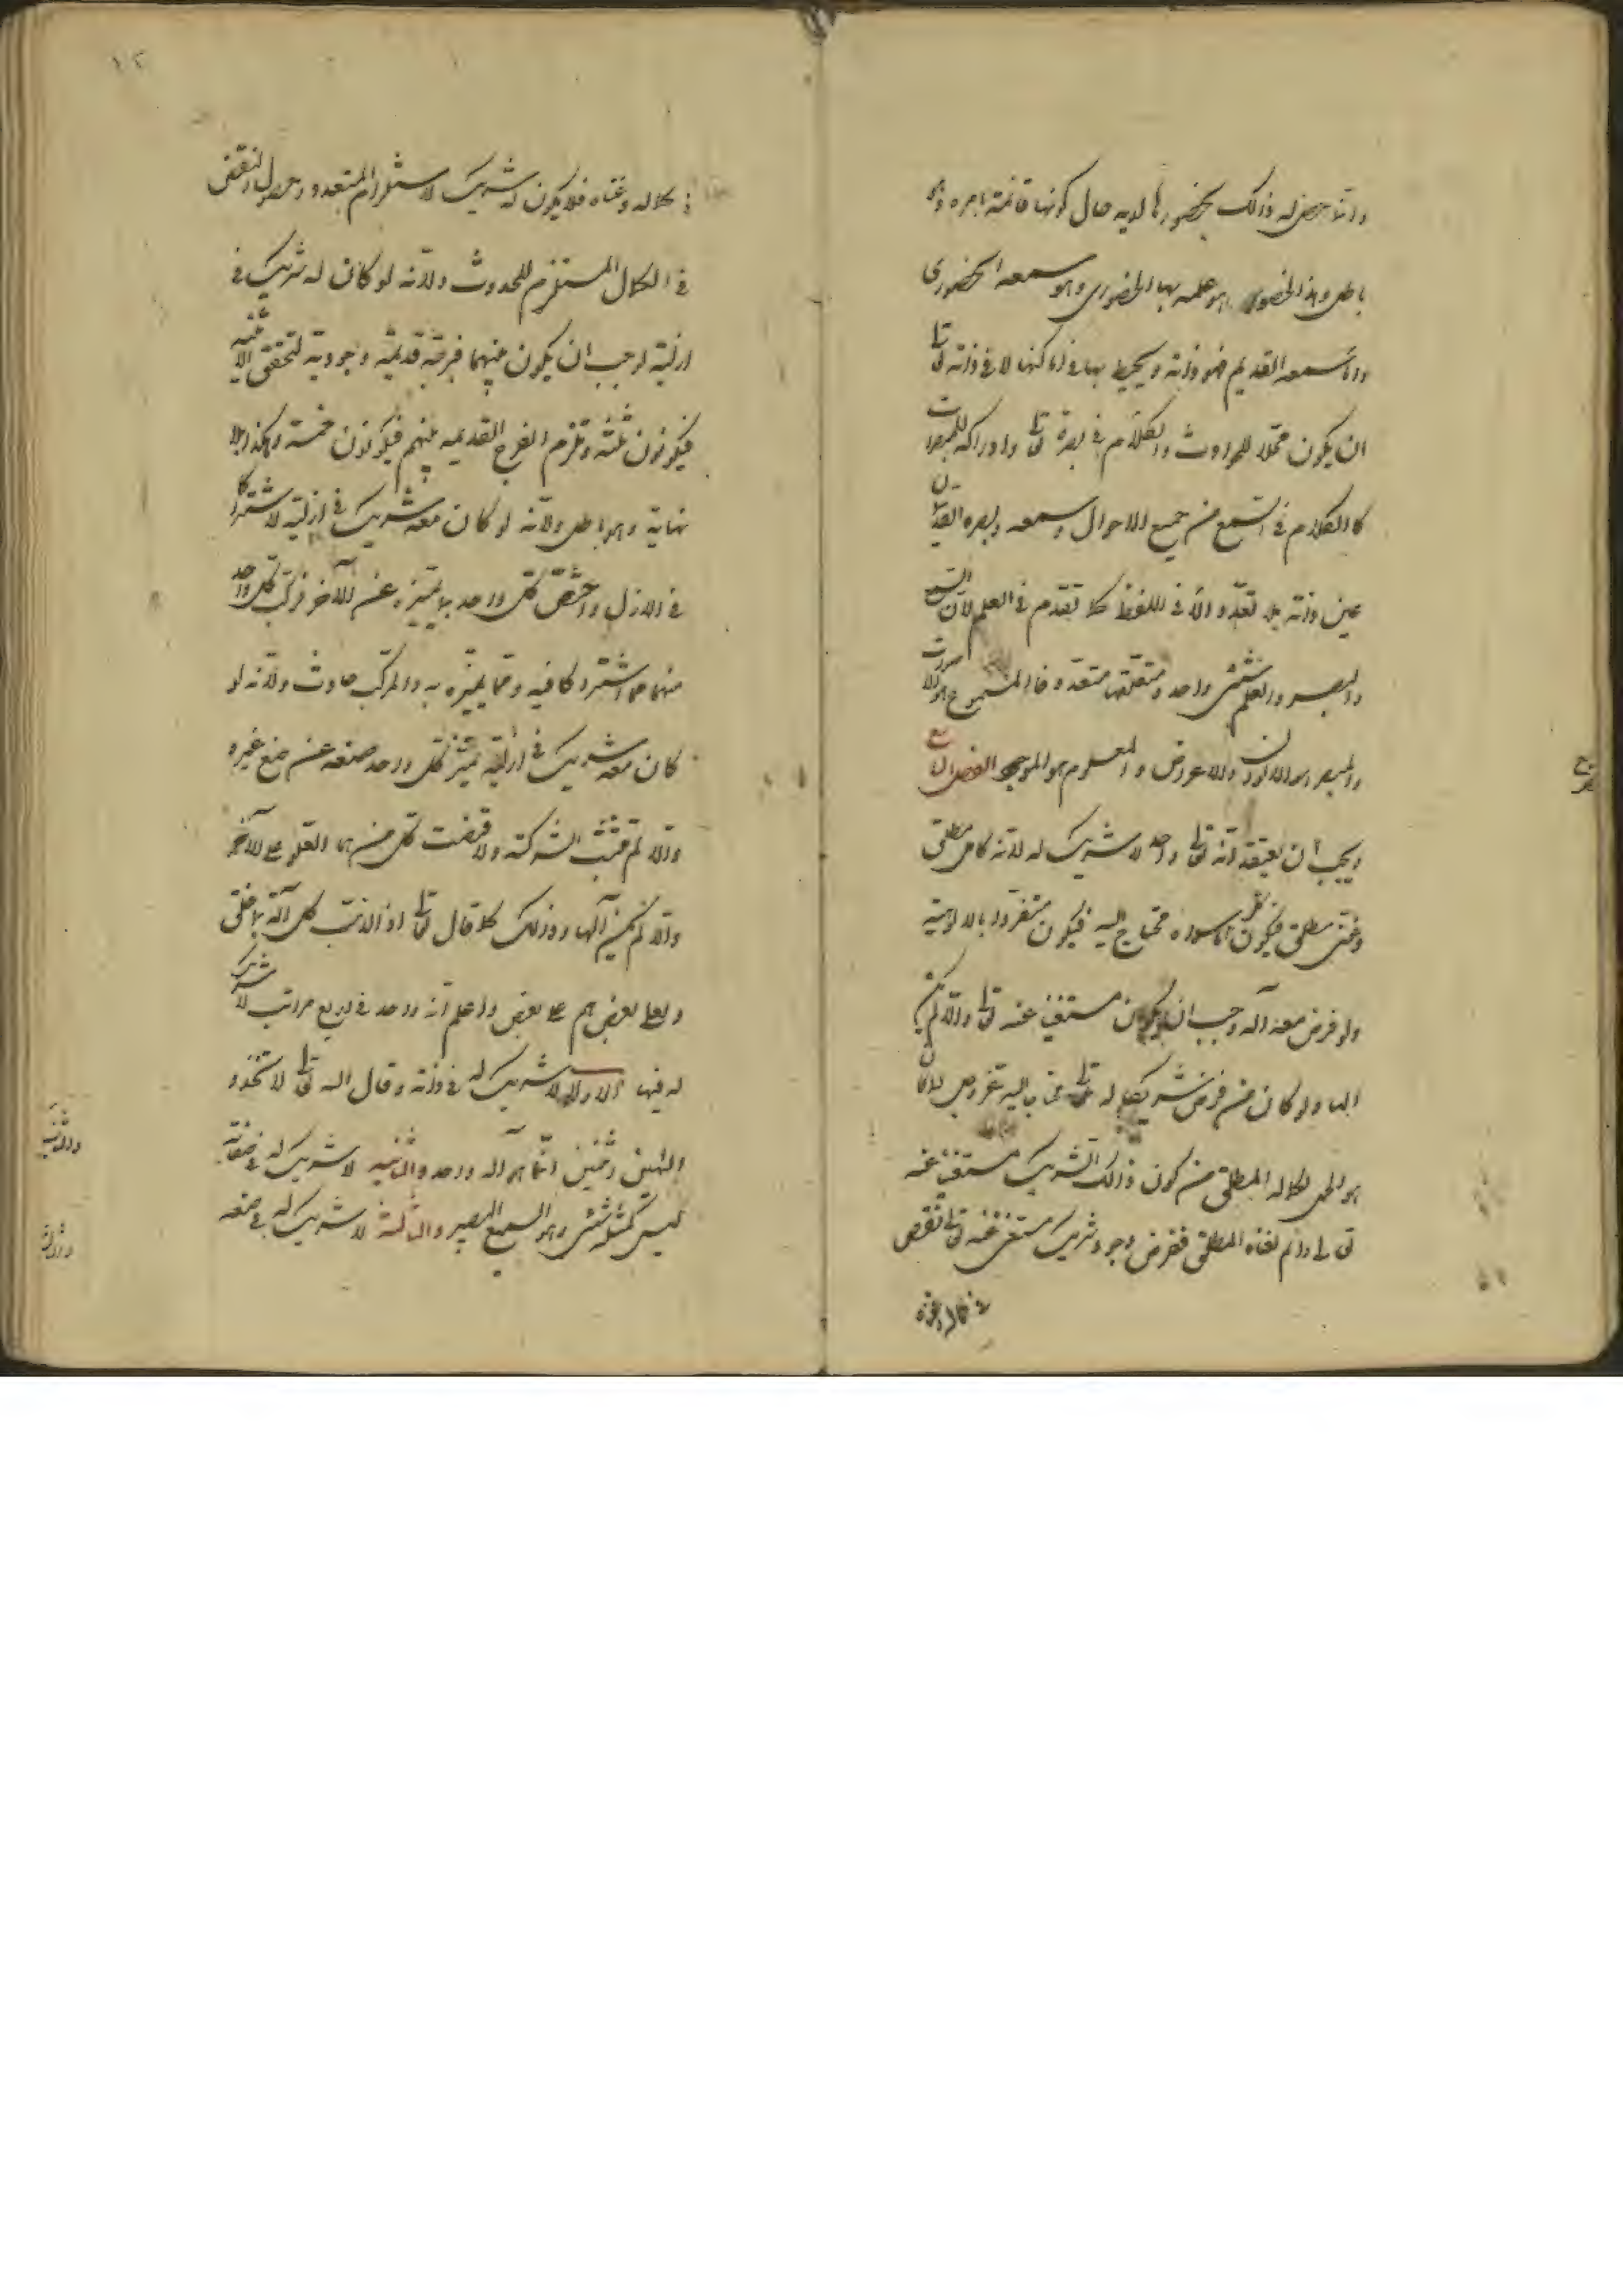 وانما حصل له ذلك بحضورها لديه حال كونها قائمة بامره وهو
باطل وهذا الحضور هو علمه بها الحضوري وهو سمعه الحضوري
واما سمعه القديم فهو ذاته ويحيط بها في اماكنها لا في ذاته تعالى
ان يكون محلا للحوادث والكلام في بصره تعالى وادراكه للمبصرات
كالكلام في السمع من جميع الاحوال وسمعه وبصره القديمان
عين ذاته بلا تعدد الا في اللفظ كما تقدم في العلم لان السمع
والبصر والعلم شئ واحد ومتعلقها متعدد فالمسموع هو الاصوات
والمبصر هو الالوان والاعراض والمعلوم هو الموجود الفصل السابع
ويجب ان يعتقد انه تعالى واحد لا شريك له لانه كامل مطلق
وغني مطلق فيكون كل ما سواه محتاج اليه فيكون متفردا بالالوهية
ولو فرض معه آله وجب ان يكون مستغنيا عنه تعالى والا لم يكن
الها ولو كان من فرض شريكا له تعالى محتاجا اليه عز وجل لكان
هو اكمل لكماله المطلق من كون ذلك الشريك مستغنيا عنه
تعالى ودائم لغناه المطلق ففرض وجود شريك مستغن عنه تعالى نقص
في كماله وغناه
في كماله وغناه فلا يكون له شريك لاستلزام التعدد وحصول النقص
في الكمال المستلزم للحدوث ولانه لو كان له شريك في
ازليته لوجب ان يكون بينهما فرجة قديمة وجودية لتحقق الاثنينية
فيكونون ثلثة وتلزم الفرج القديمة بينهم فيكونون خمسة وهكذا بلا
نهاية وهو باطل ولانه لو كان معه شريك في ازليته لاشتركا
في الازل واختص كل واحد بما يميزه عن الآخر فتركب كل واحد
منهما مما اشتركا فيه ومما يميزه به والمركب حادث ولانه لو
كان معه شريك في ازليته تميز كل واحد صنعه عن صنع غيره
والا لم تثبت الشركة ولاقتضت كل منهما العلو على الآخر
والا لم يكن آلها وذلك كما قال تعالى اذا لذهب كل اله بما خلق
ولعلا بعضهم على بعض واعلم انه واحد في اربع مراتب لا شريك
له فيها الاولى لا شريك له في ذاته وقال الله تعالى لا تتخذوا
الهين اثنين انما هو اله واحد والثانية لا شريك له في صفاته
ليس كمثله شئ وهو السميع البصير والثالثة لا شريك له في صنعه
والثانية
والثالثة